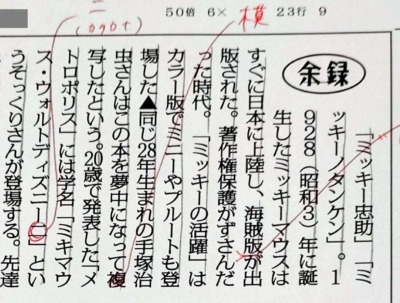 50倍 6× 23行 9
模
余録
「ミッキー忠助」「ミ
ッキーノタンケン」。1
928(昭和3)年に誕
生したミッキーマウスは
すぐに日本に上陸し、海賊版が出
版された。著作権保護がずさんだ
った時代。「ミッキーの活躍」は
カラー版でミニーやプルートも登
場した▲同じ28年生まれの手塚治
虫さんはこの本を夢中になって複
写したという。20歳で発表した「メ
トロポリス」には学名「ミキマウ
ス・ウォルトディズニーニ」とい
うそっくりさんが登場する。先達